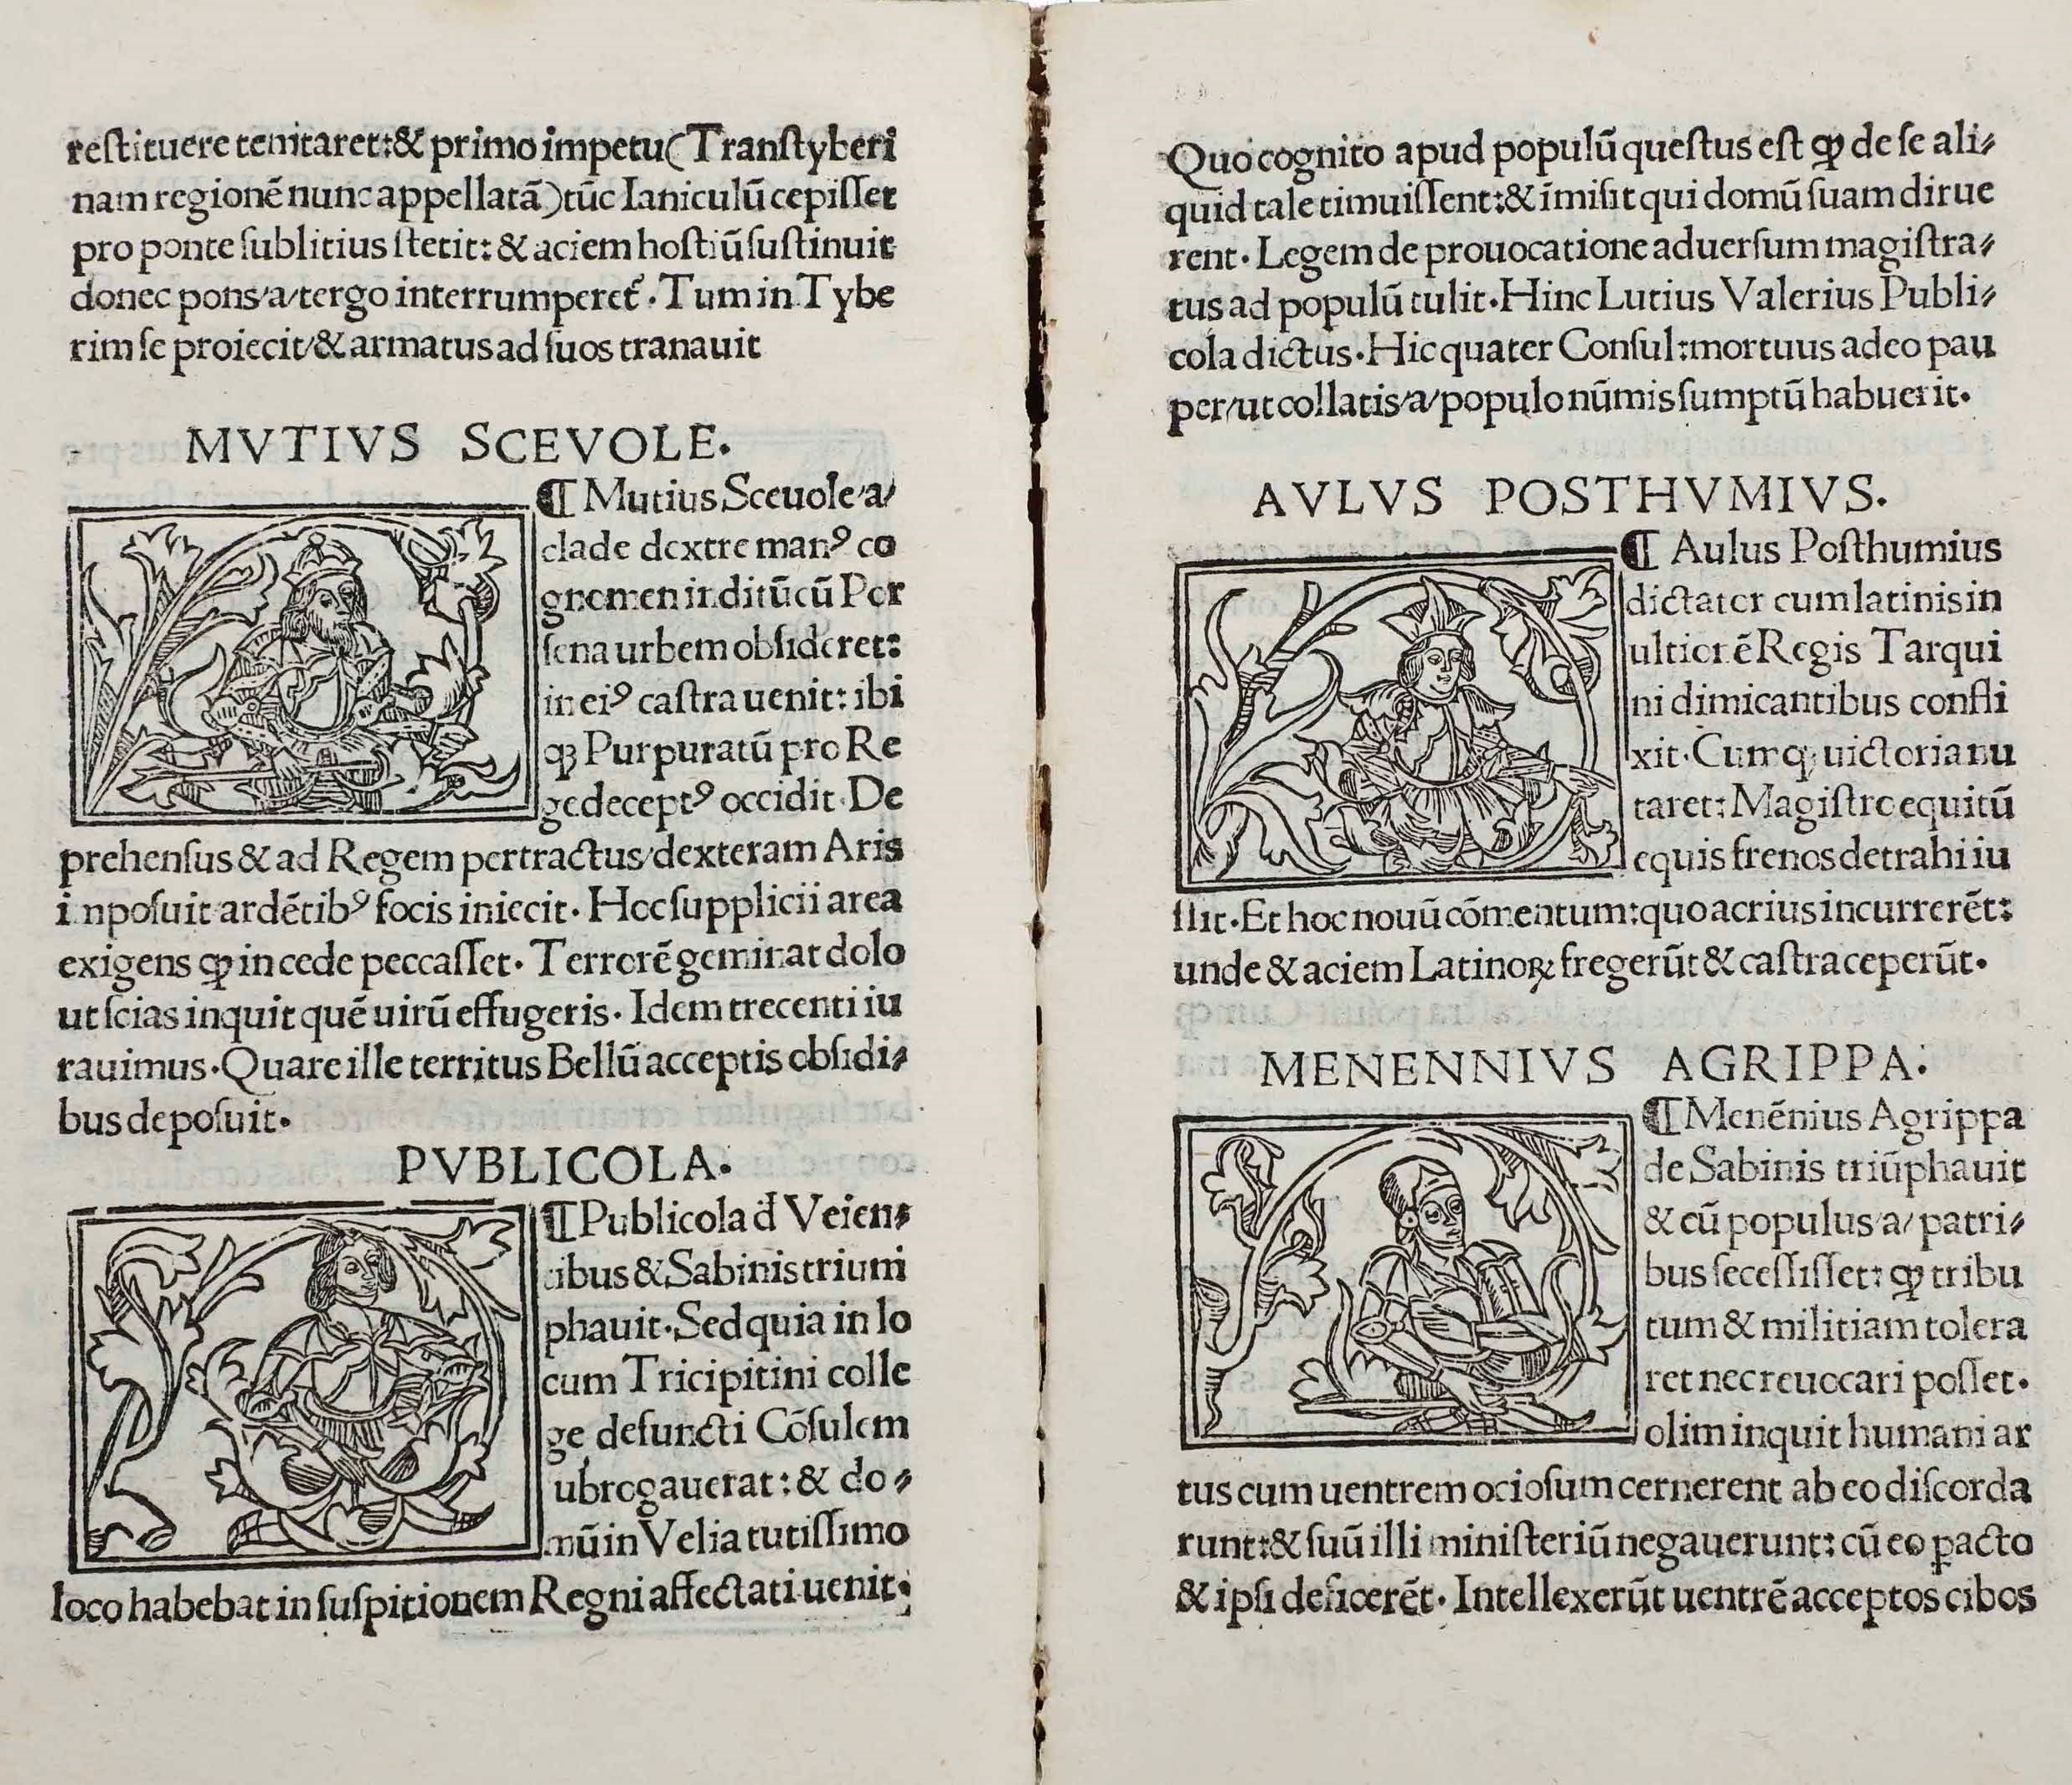 reſtituere tenitaret:& primo impetu(Tranſtyberi
nam regionē nunc appellatā)tūc Ianiculū cepiſſet
pro ponte ſublitius ſtetit: & aciem hoſtiū ſuſtinuit
donec pons/a/tergo interrumperet᷑. Tum in Tybe
rim ſe proiecit/& armatus ad ſuos tranauit
MVTIVS SCEVOLE.
¶ Mutius Sceuole/a/
clade dextre manꝰ co
gnomen inditū cū Por
ſena urbem obſideret:
in eiꝰ caſtra uenit: ibi
qꝫ Purpuratū pro Re
ge deceptꝰ occidit. De
prehenſus & ad Regem pertractus/dexteram Aris
inpoſuit ardētibꝰ focis iniecit. Hoc ſupplicii area
exigens ꝙ in cede peccaſſet. Terrorē geminat dolo
ut ſcias inquit quē uirū effugeris. Idem trecenti iu
rauimus. Quare ille territus Bellū acceptis obſidi⸗
bus depoſuit.
PVBLICOLA.
¶ Publicola đ Veien⸗
tibus & Sabinis trium
phauit. Sed quia in lo
cum Tricipitini colle
ge defuncti Cōſulem
ubrogauerat: & do⸗
mū in Velia tutiſſimo
loco habebat in ſuſpitionem Regni affectati uenit.
Quo cognito apud populū queſtus eſt ꝙ de ſe ali⸗
quid tale timuiſſent:& īmiſit qui domū ſuam dirue
rent. Legem de prouocatione aduerſum magiſtra⸗
tus ad populū tulit. Hinc Lutius Valerius Publi⸗
cola dictus. Hic quater Conſul: mortuus adeo pau
per/ut collatis/a/populo nūmis ſumptū habuerit.
AVLVS POSTHVMIVS.
¶ Aulus Poſthumius
dictator cum latinis in
ultiorē Regis Tarqui
ni dimicantibus confli
xit. Cumqꝫ uictoria nu
taret: Magiſtro equitū
equis frenos detrahi iu
ſſit. Et hoc nouū cōmentum: quo acrius incurrerēt:
unde & aciem Latinoꝝ fregerūt & caſtra ceperūt.
MENENNIVS AGRIPPA.
¶ Menēnius Agrippa
de Sabinis triūphauit
& cū populus/a/patri⸗
bus ſeceſſiſſet: ꝙ tribu
tum & militiam tolera
ret nec reuocari poſſet.
olim inquit humani ar
tus cum uentrem ocioſum cernerent ab eo diſcorda
runt:& ſuū illi miniſteriū negauerunt: cū eo ꝑacto
& ipſi deficerēt. Intellexerūt uentrē acceptos cibos